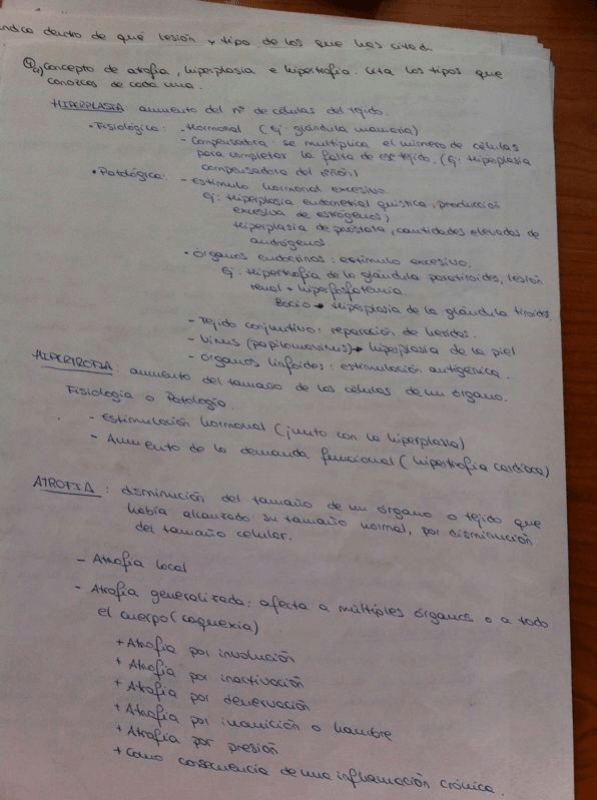 indica dentro de qué lesión y tipo de los que has citado
4) a) Concepto de atrofia, hiperplasia e hipertrofia. Cita los tipos que
conozcas de cada una.
HIPERPLASIA: aumento del nº de células del tejido.
• Fisiológica: - Hormonal (Ej: glándula mamaria)
- Compensadora: se multiplica el número de células
para completar la falta de ese tejido. (Ej: hiperplasia
compensadora del riñón)
• Patológica: - Estímulo hormonal excesivo
Ej: Hiperplasia endometrial quística, producción
excesiva de estrógenos;
Hiperplasia de próstata, cantidades elevadas de
andrógenos
• Órganos endocrinos: estímulo excesivo.
Ej: Hipertrofia de la glándula paratiroides, lesión
renal + hiperfosfatemia.
Bocio → Hiperplasia de la glándula tiroides.
- Tejido conjuntivo: reparación de heridas.
- Virus (papilomavirus) → hiperplasia de la piel
- Órganos linfoides: estimulación antigénica.
HIPERTROFIA: aumento del tamaño de las células de un órgano.
Fisiología o Patología
- Estimulación hormonal (junto con la hiperplasia)
- Aumento de la demanda funcional (hipertrofia cardiaca)
ATROFIA: disminución del tamaño de un órgano o tejido que
había alcanzado su tamaño normal, por disminución
del tamaño celular.
- Atrofia local
- Atrofia generalizada: afecta a múltiples órganos o a todo
el cuerpo (caquexia)
+ Atrofia por involución
+ Atrofia por inactivación
+ Atrofia por denervación
+ Atrofia por inanición o hambre
+ Atrofia por presión
+ Como consecuencia de una inflamación crónica.